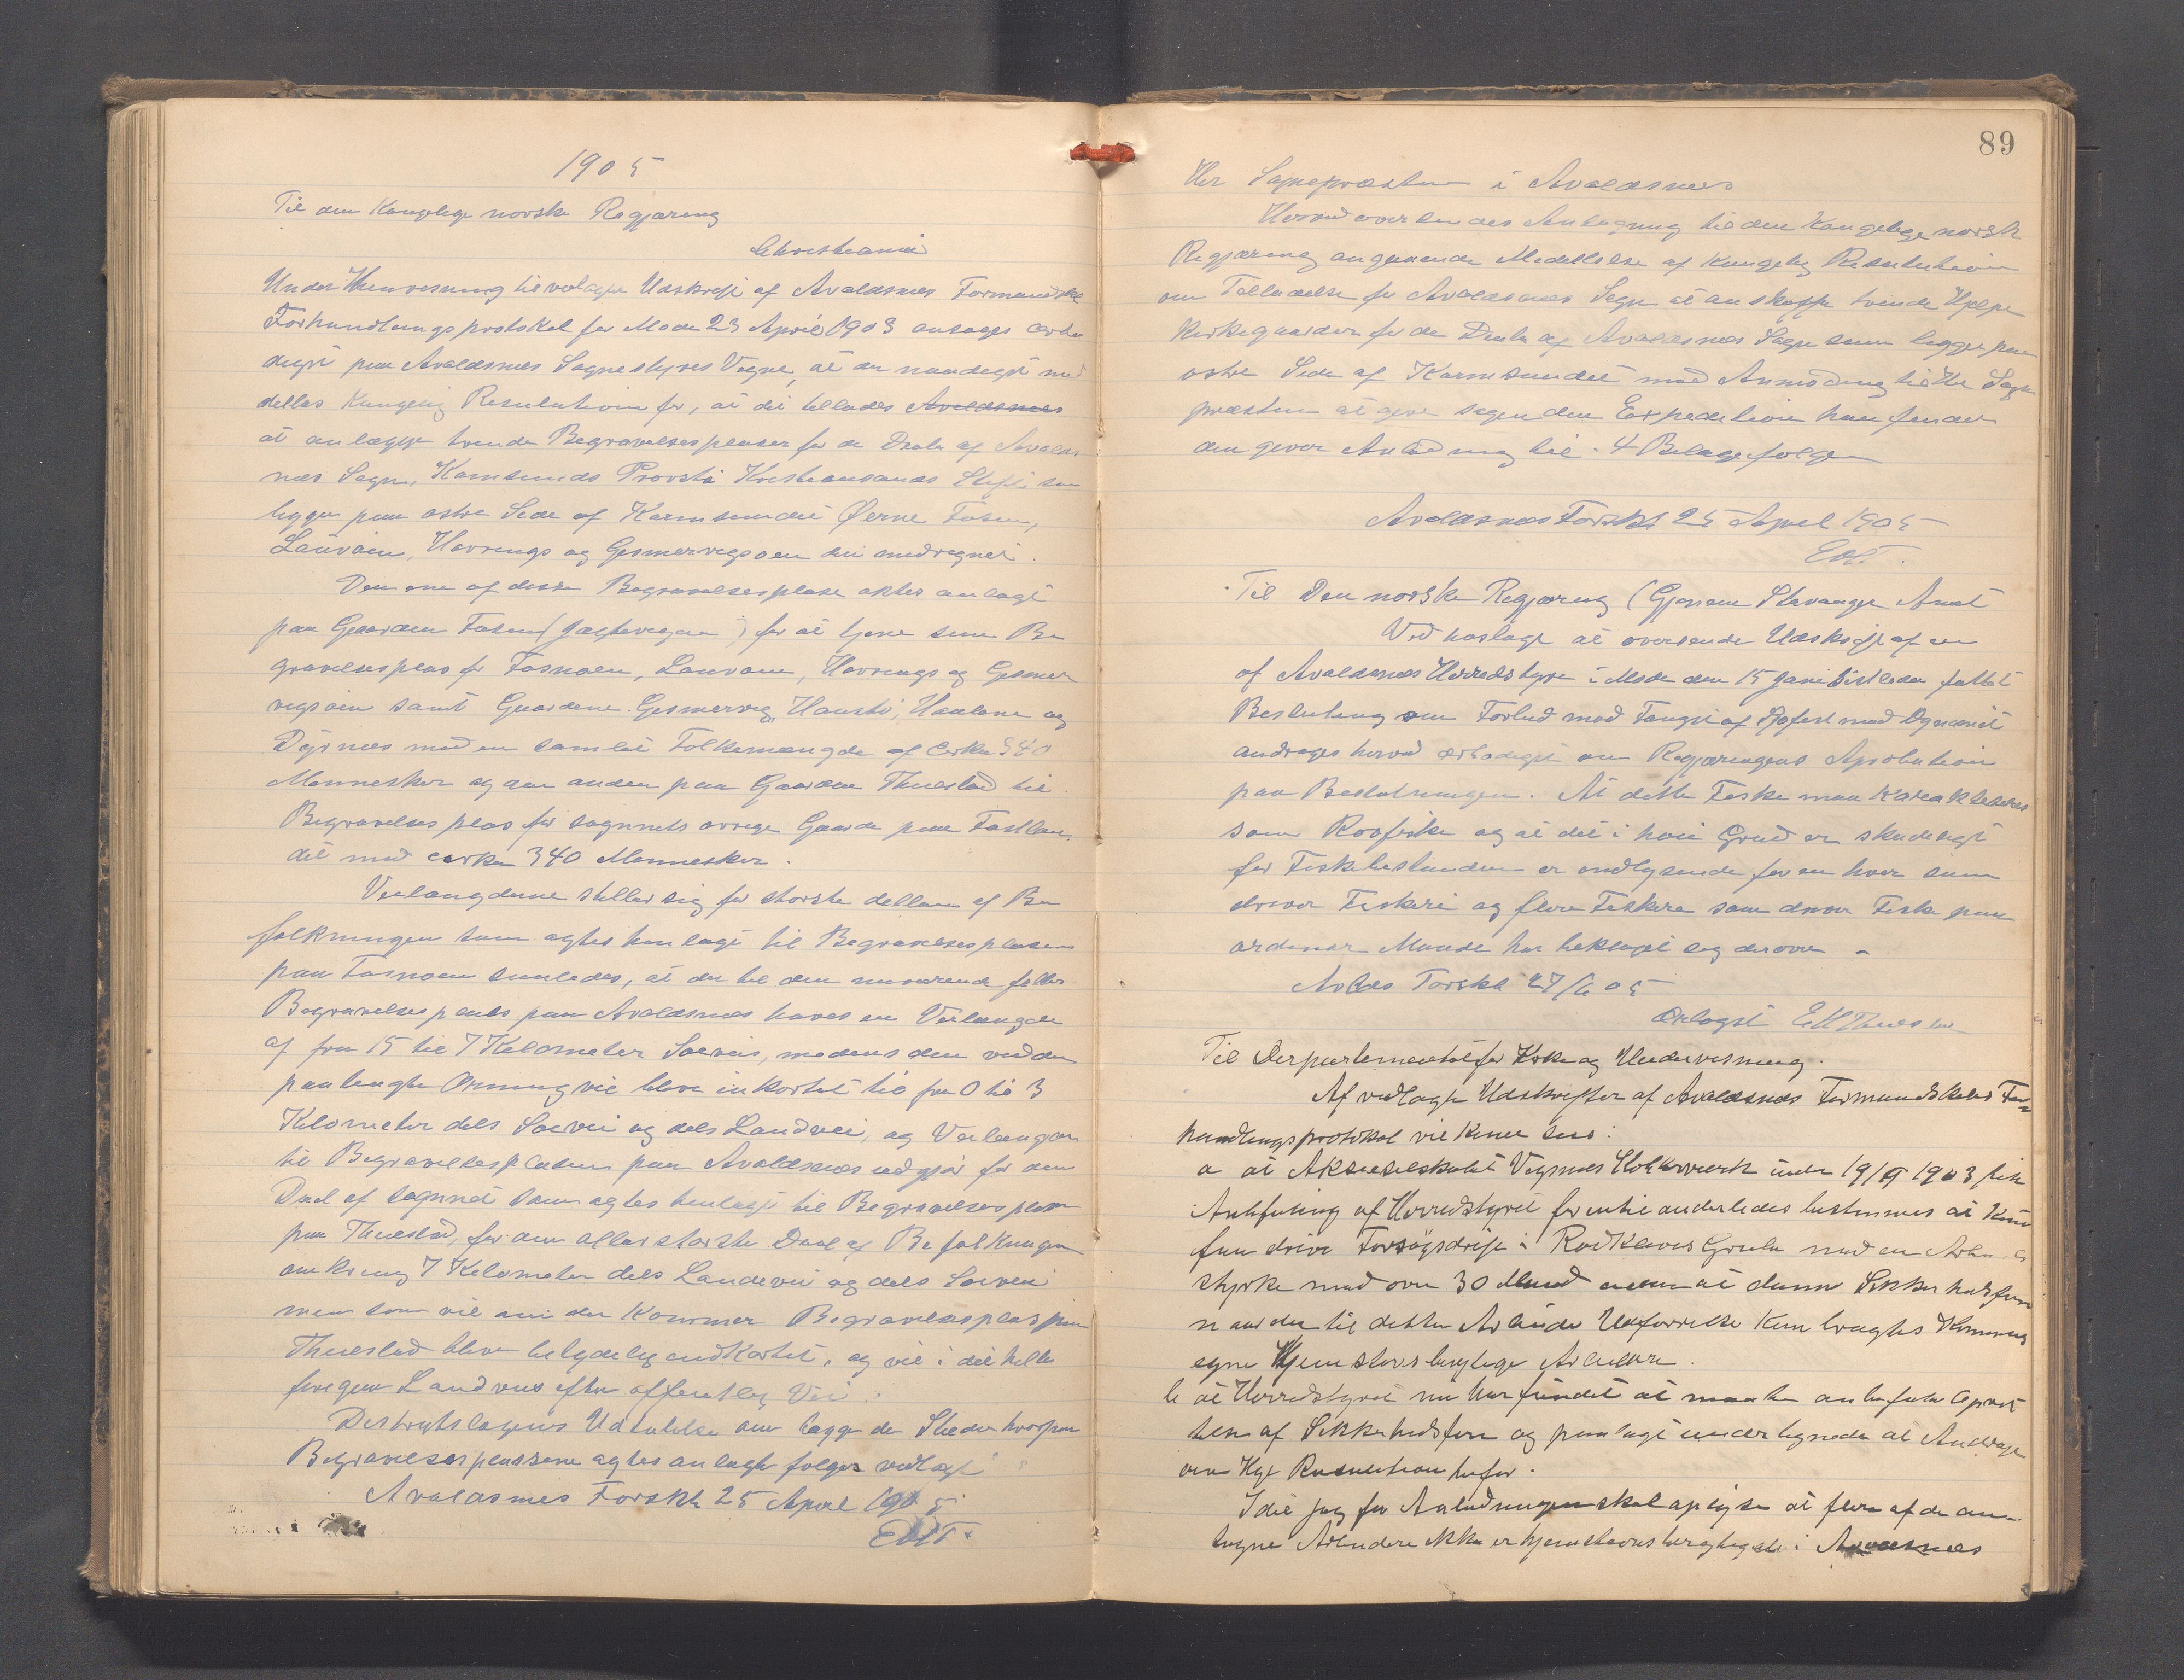 1905
Til den Kongelige norske Regjæring
Christiania
Under Henvisning til vedlagte Udskrift af Avaldsnes Formandsk
Forhandlingsprotokol for Møde 23 April 1903 ansøges ærbø
digst paa Avaldsnes Sognestyres Vegne, at der naadigst med
deles Kongelig Resulution for, at det tillades Avaldsnes
at anlægge tvende Begravelsesplaser for de Deele af Avalds
nes Sogn, Karmsunds Provsti Kristiansands Stift som
ligger paa østre Side af Karmsundet Øerne Fosen,
Lauvøen, Høvrings og Gismervigsøen iberegnet.
Den ene af disse Begravelsesplase agtes anlagt
paa Gaarden Fosen (Jægtevegen) for at tjene som Be
gravelsesplas for Fosnøen, Lauvøen, Høvrings og Gismer
vigsøen samt Gaardene Gismervig, Hausti, Haalene og
Dyrnes med en samlet Folkemængde af cirka 340
Mennesker og den anden paa Gaarden Thuestad til
Begravelsesplas for sognets øvrige Gaarde paa Fastlan
det med cirka 340 Mennesker.
Veilængderne stiller sig for største delen af Be
folkningen som agtes henlagt til Begravelsesplasen
paa Fosnøen saaledes, at der til den nuværende fælles
Begravelsesplads paa Avaldsnes haves en Veilængde
af fra 15 til 7 Kilometer Søevei, medens den ved den
paatenkte Ordning vil blive inkortet til fra 0 til 3
Kilometer dels Søevei og dels Landvei, og Veilængden
til Begravelsespladsen paa Avaldsnes udgjør for den
Deel af sognet som agtes henlagt til Begravelsesplasen
paa Thuestad, for den allerstørste Deel af Befolkningen
omkring 7 Kilometer dels Landevei og dels Søevei
men som vil om der kommer Begravelsesplas paa
Thuestad blive betydelig indkortet, og vil i det hele
foregaa Landveis efter offentlig Vei.
Distriktslægens Udtalelse om begge de Steder hvorpaa
Begravelsesplassene agtes anlagt følger vedlagt
Avaldsnes Forskb 25 April 1905
EHT.
89
Hr Sognepræsten i Avaldsnes
Herved oversendes Andragning til den Kongelige norsk
Regjæring angaaende Meddelelse af Kongelig Resulution
om Tilladelse for Avaldsnes Sogn at anskaffe tvende Hjælpe
kirkegaarder for de Deele af Avaldsnes Sogn som ligger paa
østre Side af Karmsundet med Anmodning til Hr Sogne
præsten at give sagen den Expedition han finder
den giver Anledning til. 4 Belage følger
Avaldsnes Forskb 25 April 1905
EHT.
Til Den norske Regjæring (Gjennem Stavanger Amt
Ved hoslagt at oversende Udskrift af en
af Avaldsnes Herredstyre i Møde den 15 Juni sistleden fattet
Beslutning om Forbud mod Fangst af med Dynamit
andrages herved ærbødigst om Regjæringens Aprobation
paa Beslutningen. At dette Fiske maa karakteseres
som Rovfiske og at det i høi Grad er skadeligt
for Fiskebestanden er indlysende for en hver som
driver Fiskeri og flere Fiskere som driver Fiske paa
ordinær Maade har beklaget sig derover –
Avlds Forskb 27/6 05
Ærbøgst EHThuestad
Til Derpartementet for Kirke og Undervisning.
Af vedlagte Udskrifter af Avaldsnes Formandskabs For
handlingsprotokol vil kunne sees:
a at Aktieselskabet Vigsnes Kobberværk under 19/9 1903 fik
Anbefaling af Herredstyret for indtil anderledes bestemmes at kun
faa drive Forsøgsdrift i Rødklevs Grube med en Arbeids
styrke med over 30 Mand uden at danne Sikkerhedsfon
naar der til dette Arbeide Udførrelse kun brugtes Kommunens
egne Hjemstavnsberettigede Arbeidere.
b at Herredstyret nu har fundet at maatte anbefale opret
telse af Sikkerhedsfon og paalagt undertegnede at Andrage
om Kgl Resulution herfor.
Idet jeg for Anledningen skal oplyse at flere af de an
tagne Arbeidere ikke er hjemstavnsberettigede i Avaldsnes